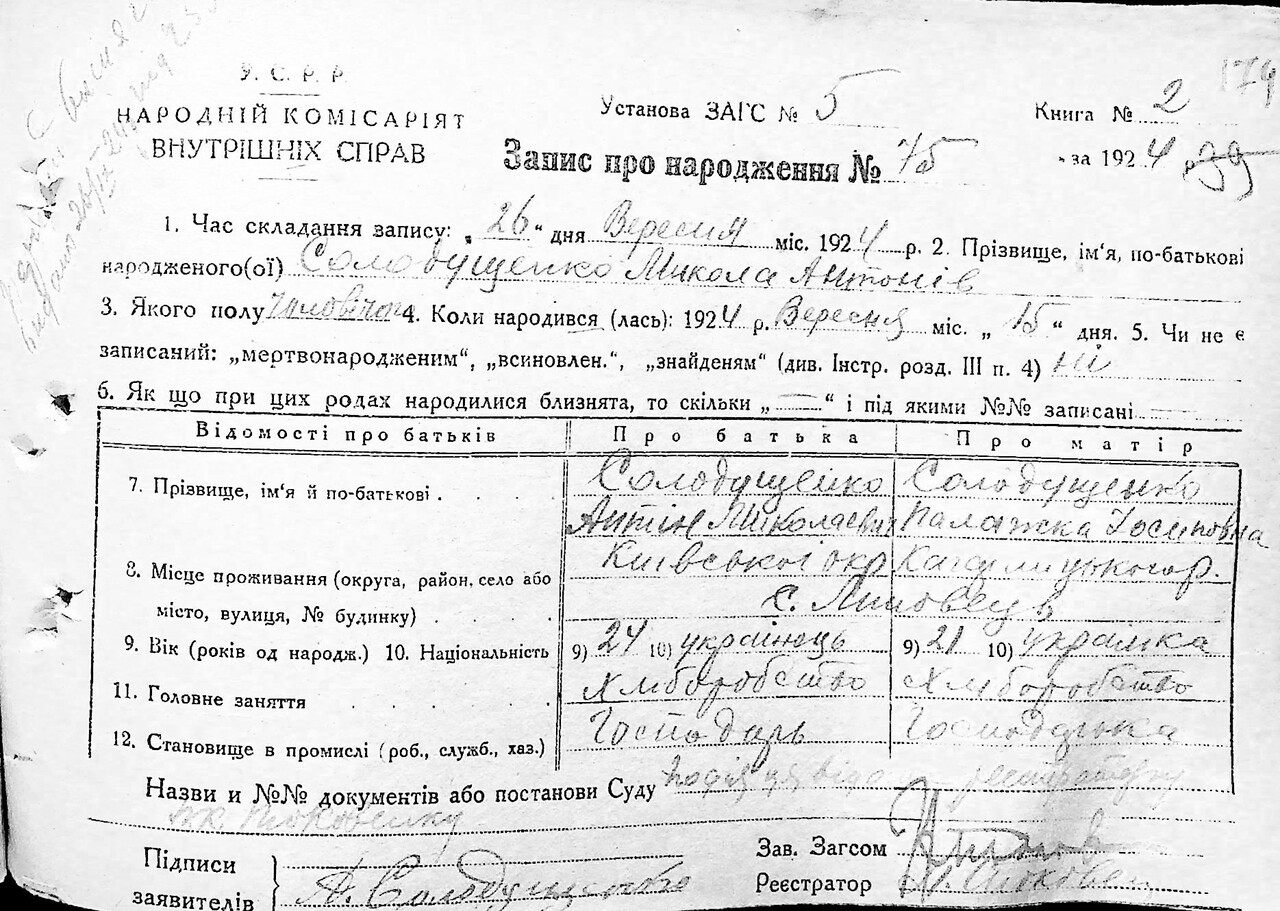 174
У. С. Р. Р.
НАРОДНІЙ КОМІСАРІЯТ
ВНУТРІШНІХ СПРАВ
Установа ЗАГС № 5
Книга № 2
Запис про народження № 75
за 1924 р. 39
1. Час складання запису: „26“ дня Вересня міс. 1924 р. 2. Прізвище, ім‘я, по-батькові
народженого(ої) Солодущенко Микола Антонів
3. Якого полу Чоловічого 4. Коли народився (лась): 1924 р. Вересня міс. „15“ дня. 5. Чи не є
записаний: „мертвонародженим“, „всиновлен.“, „знайденям“ (див. Інстр. розд. III п. 4) ні
6. Як що при цих родах народилися близнята, то скільки „—“ і під якими №№ записані —
Відомості про батьків Про батька Про матір
7. Прізвище, ім‘я й по-батькові . . . . Солодущенко Солодущенко
Антін Миколаевич Палажка Йосиповна
8. Місце проживання (округа, район, село або Київської окр Кагарлицького р.
місто, вулиця, № будинку) . . . . с. Липовець
9. Вік (років од народж.) 10. Національність 9) 24 10) українець 9) 21 10) українка
11. Головне заняття . . . . . Хліборобство Хліборобство
12. Становище в промислі (роб., служб., хаз.) Господарь Господарька
Назви и №№ документів або постанови Суду подія ця реєстратору
Підписи
заявителів А. Солодущенко
Зав. Загсом
Реєстратор